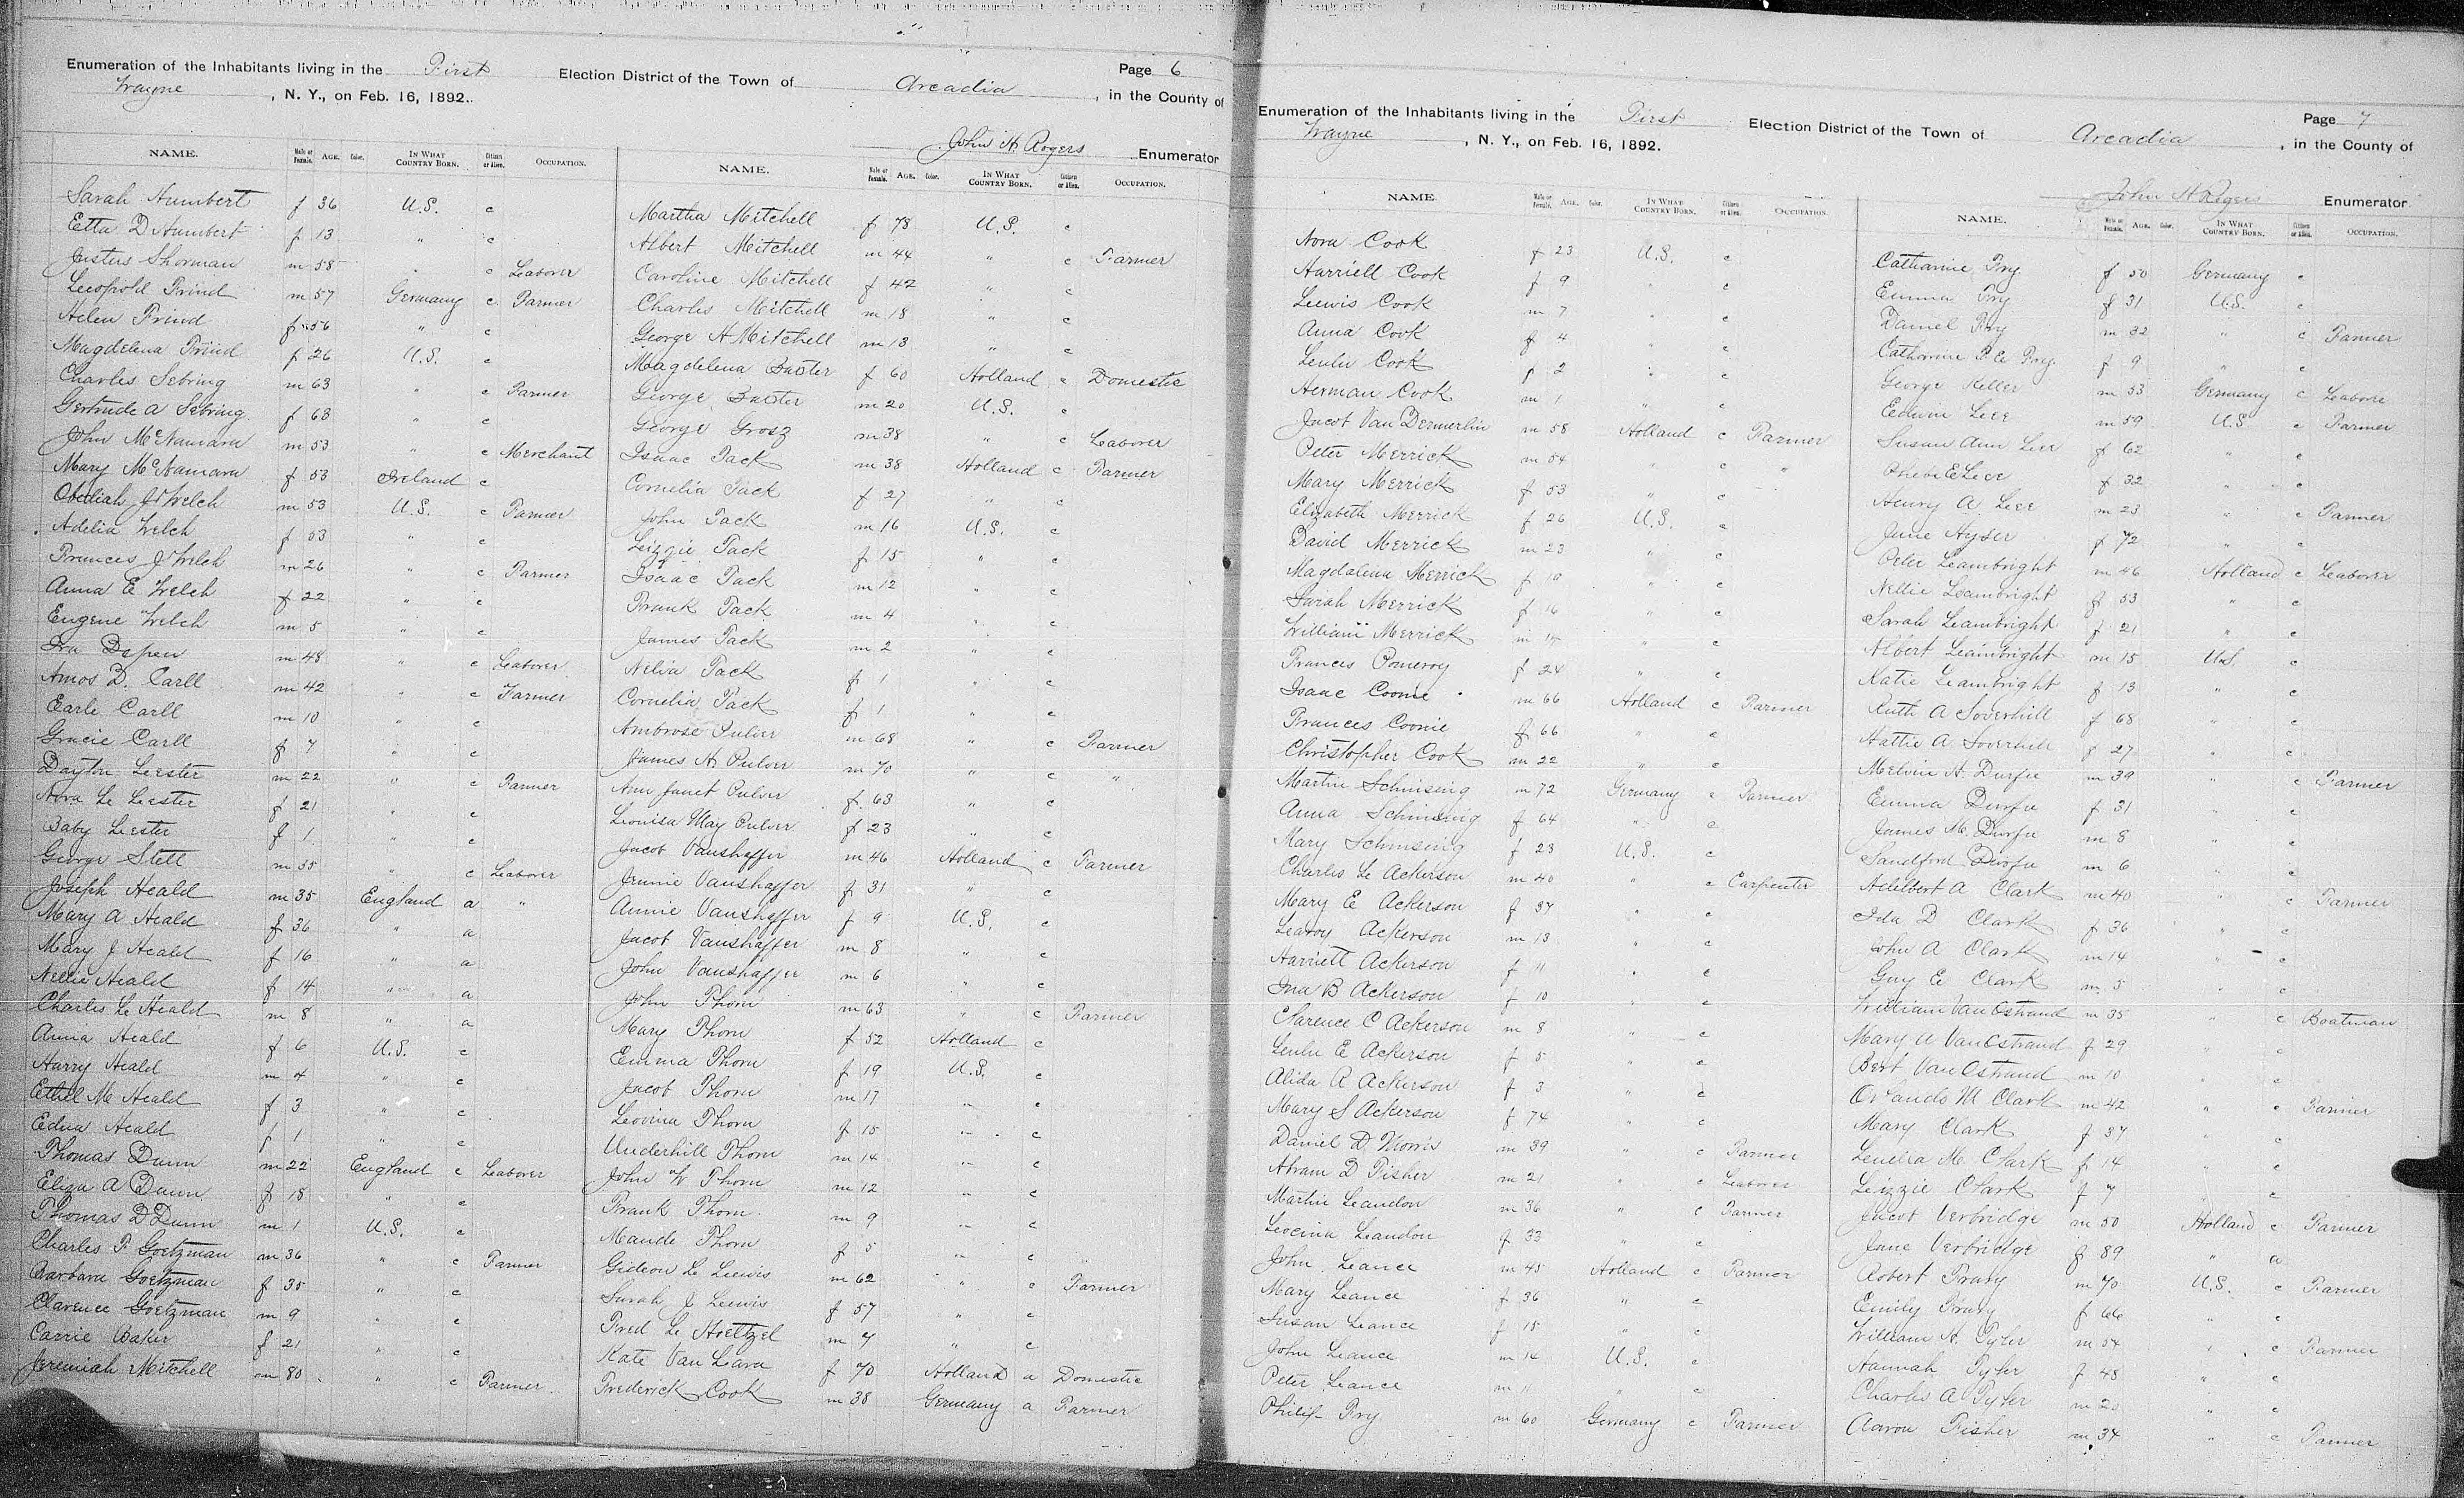 Page 6
Enumeration of the Inhabitants living in the First Election District of the Town of Arcadia, in the County of
Wayne, N. Y., on Feb. 16, 1892.
John H Rogers Enumerator
NAME. Male or Female. AGE. Color. IN WHAT COUNTRY BORN. Citizen or Alien. OCCUPATION.
Sarah Humbert f 36 U.S. c
Etta D Humbert f 13 " c
Justus Shorman m 58 " c Laborer
Leopold Frind m 57 Germany c Farmer
Helen Frind f 56 " c
Magdelena Frind f 26 U.S. c
Charles Sebring m 63 " c Farmer
Gertrude A Sebring f 63 " c
John McNamara m 53 " c Merchant
Mary McNamara f 53 Ireland c
Obediah J Welch m 53 U.S. c Farmer
Adelia Welch f 53 " c
Frances J Welch m 26 " c Farmer
Anna E Welch f 22 " c
Eugene Welch m 5 " c
Ira Depew m 48 " c Laborer
Amos D. Carll m 42 " c Farmer
Earle Carll m 10 " c
Gracie Carll f 7 " c
Dayton Lester m 22 " c Farmer
Nora L Lester f 21 " c
Baby Lester f 1 " c
George Stell m 35 " c Laborer
Joseph Heald m 35 England a "
Mary A Heald f 36 " a
Mary J Heald f 16 " a
Nellie Heald f 14 " a
Charles L Heald m 8 " a
Anna Heald f 6 U.S. c
Harry Heald m 4 " c
Ethel M Heald f 3 " c
Edna Heald f 1 " c
Thomas Dunn m 22 England c Laborer
Eliza A Dunn f 18 " c
Thomas D Dunn m 1 U.S. c
Charles F Goetzman m 36 " c Farmer
Barbara Goetzman f 35 " c
Clarence Goetzman m 9 " c
Carrie Baker f 21 " c
Jeremiah Mitchell m 80 " c Farmer
NAME. Male or Female. AGE. Color. IN WHAT COUNTRY BORN. Citizen or Alien. OCCUPATION.
Martha Mitchell f 78 U.S. c
Albert Mitchell m 44 " c Farmer
Caroline Mitchell f 42 " c
Charles Mitchell m 18 " c
George H Mitchell m 13 " c
Magdelena Baxter f 60 Holland c Domestic
George Baxter m 20 U.S. c
George Grosz m 38 " c Laborer
Isaac Tack m 38 Holland c Farmer
Cornelia Tack f 27 " c
John Tack m 16 U.S. c
Lizzie Tack f 15 " c
Isaac Tack m 12 " c
Frank Tack m 4 " c
James Tack m 2 " c
Nelia Tack f 1 " c
Cornelia Tack f 1 " c
Ambrose Pulver m 68 " c Farmer
James H Pulver m 70 " c "
Ann Janet Pulver f 63 " c
Louisa May Pulver f 23 " c
Jacob Vanshaffer m 46 Holland c Farmer
Jennie Vanshaffer f 31 " c
Annie Vanshaffer f 9 U.S. c
Jacob Vanshaffer m 8 " c
John Vanshaffer m 6 " c
John Thorn m 63 " c Farmer
Mary Thorn f 52 Holland c
Emma Thorn f 19 U.S. c
Jacob Thorn m 17 " c
Lovina Thorn f 15 " c
Underhill Thorn m 14 " c
John W Thorn m 12 " c
Frank Thorn m 9 " c
Maude Thorn f 5 " c
Gideon L Lewis m 62 " c Farmer
Sarah J Lewis f 57 " c
Fred L Hoeltzel m 7 " c
Kate Van Lara f 70 Holland a Domestic
Frederick Cook m 38 Germany a Farmer
Page 7
Enumeration of the Inhabitants living in the First Election District of the Town of Arcadia, in the County of
Wayne, N. Y., on Feb. 16, 1892.
John H Rogers Enumerator
NAME. Male or Female. AGE. Color. IN WHAT COUNTRY BORN. Citizen or Alien. OCCUPATION.
Nora Cook f 23 U.S. c
Harriell Cook f 9 " c
Lewis Cook m 7 " c
Anna Cook f 4 " c
Lulu Cook f 2 " c
Herman Cook m 1 " c
Jacob Van Dermerlin m 58 Holland c Farmer
Peter Merrick m 54 " c "
Mary Merrick f 53 " c
Elizabeth Merrick f 26 U.S. c
David Merrick m 23 " c
Magdalena Merrick f c
Sarah Merrick f 16 " c
William Merrick m 14 " c
Frances Pomeroy f 24 " c
Isaac Coomie m 66 Holland c Farmer
Frances Coomie f 66 " c
Christopher Cook m 22 " c
Martin Schmising m 72 Germany c Farmer
Anna Schmising f 64 " c
Mary Schmising f 23 U.S. c
Charles L Ackerson m 40 " c Carpenter
Mary E Ackerson f 37 " c
Learoy Ackerson m 13 " c
Harriett Ackerson f 11 " c
Ina B Ackerson f 10 " c
Clarence C Ackerson m 8 " c
Lulu E Ackerson f 5 " c
Alida R Ackerson f 3 " c
Mary S Ackerson f 74 " c
Daniel D Morris m 39 " c Farmer
Abram D Fisher m 21 " c Laborer
Martin Landon m 36 " c Farmer
Lovina Landon f 33 " c
John Lance m 45 Holland c Farmer
Mary Lance f 36 " c
Susan Lance f 15 " c
John Lance m 14 U.S. c
Peter Lance m 11 " c
Philip Fry m 60 Germany c Farmer
NAME. Male or Female. AGE. Color. IN WHAT COUNTRY BORN. Citizen or Alien. OCCUPATION.
Catharine Fry f 50 Germany c
Emma Fry f 31 U.S. c
Daniel Fry m 32 " c Farmer
Catharine Fry f 9 " c
George Keller m 53 Germany c Labore
Edwin Lee m 59 U.S c Farmer
Susan Ann Lee f 62 " c
Phebe E Lee f 32 " c
Henry A Lee m 23 " c Farmer
Jane Hyser f 72 " c
Peter Lambright m 46 Holland c Laborer
Nellie Lambright f 53 " c
Sarah Lambright f 21 " c
Albert Lambright m 15 U.S. c
Katie Lambright f 13 " c
Ruth A Soverhill f 68 " c
Hattie A Soverhill f 27 " c
Melvin H. Durfee m 39 " c Farmer
Emma Durfee f 31 " c
James M. Durfee m 8 " c
Sandford Durfee m 6 " c
Adelbert A Clark m 40 " c Farmer
Ida D Clark f 36 " c
John A Clark m 14 " c
Guy E Clark m 5 " c
William Van Ostrand m 35 " c Boatman
Mary A Van Ostrand f 29 " c
Bert Van Ostrand m 10 " c
Orlando M Clark m 42 " c Farmer
Mary Clark f 37 " c
Luella M. Clark f 14 " c
Lizzie Clark f 7 " c
Jacob Verbridge m 50 Holland c Farmer
Jane Verbridge f 89 " a
Robert Frary m 70 U.S. c Farmer
Emily Frary f 66 " c
William H. Tyler m 54 " c Farmer
Hannah Tyler f 48 " c
Charles A Tyler m 20 " c
Aaron Fisher m 34 " c Farmer